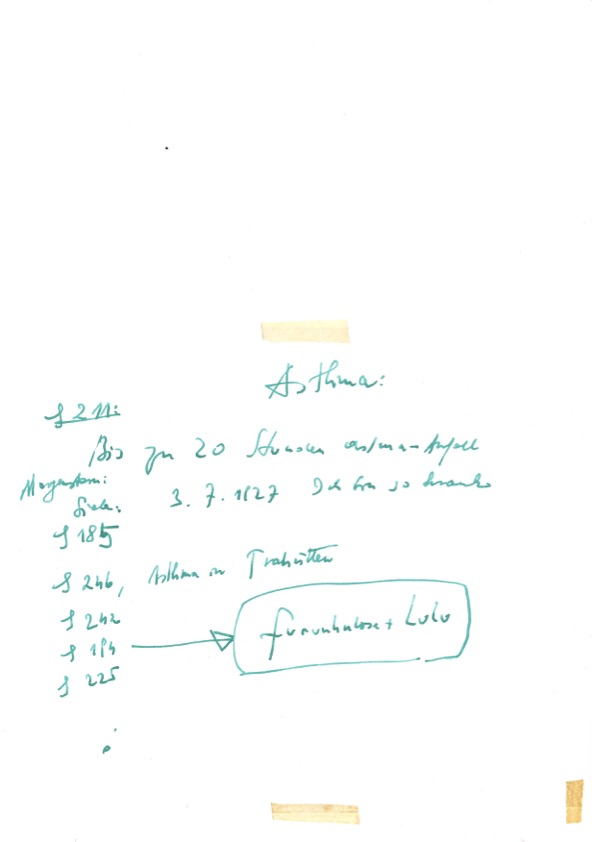 Asthma:
S 211:
Bis zu 20 Stunden Asthma-Anfall
Morgenstern:
Siehe: 3. 7. 1927 Ich bin so krank
S 185
S 246, Asthma in Trahütten
S 242
S 194 Furunkulose + Lulu
S 225